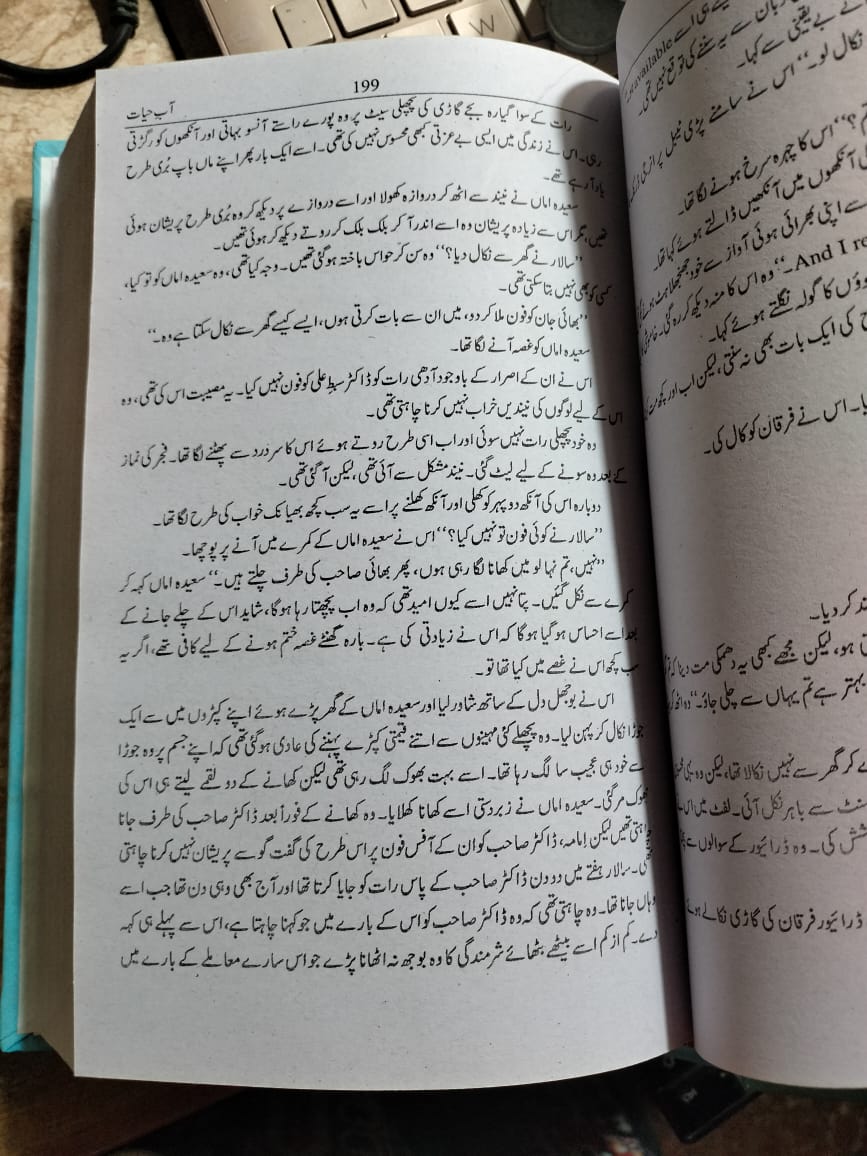 199
آب حیات
رات کے سوا گیارہ بجے گاڑی کی پچھلی سیٹ پر وہ پورے راستے آنسو بہاتی اور آنکھوں کو رگڑتی
رہی۔ اس نے زندگی میں ایسی بے عزتی کبھی محسوس نہیں کی تھی۔ اسے ایک بار پھر اپنے ماں باپ بُری طرح
یاد آ رہے تھے۔
سعیدہ اماں نے نیند سے اٹھ کر دروازہ کھولا اور اسے دروازے پر دیکھ کر وہ بُری طرح پریشان ہوئی
تھیں، مگر اس سے زیادہ پریشان وہ اسے اندر آ کر بلک بلک کر روتے دیکھ کر ہوئی تھیں۔
”سالار نے گھر سے نکال دیا؟“ وہ سن کر حواس باختہ ہو گئی تھیں۔ وجہ کیا تھی، وہ سعیدہ اماں کو تو کیا،
کسی کو بھی نہیں بتا سکتی تھی۔
”بھائی جان کو فون ملا کر دو، میں ان سے بات کرتی ہوں، ایسے کیسے گھر سے نکال سکتا ہے وہ۔“
سعیدہ اماں کو غصہ آنے لگا تھا۔
اس نے ان کے اصرار کے باوجود آدھی رات کو ڈاکٹر سبط علی کو فون نہیں کیا۔ یہ مصیبت اس کی تھی، وہ
اس کے لیے لوگوں کی نیندیں خراب نہیں کرنا چاہتی تھی۔
وہ خود پچھلی رات نہیں سوئی اور اب اسی طرح روتے ہوئے اس کا سر درد سے پھٹنے لگا تھا۔ فجر کی نماز
کے بعد وہ سونے کے لیے لیٹ گئی۔ نیند مشکل سے آئی تھی، لیکن آ گئی تھی۔
دوبارہ اس کی آنکھ دوپہر کو کھلی اور آنکھ کھلنے پر اسے یہ سب کچھ بھیانک خواب کی طرح لگا تھا۔
”سالار نے کوئی فون تو نہیں کیا؟“ اس نے سعیدہ اماں کے کمرے میں آنے پر پوچھا۔
”نہیں، تم نہا لو میں کھانا لگا رہی ہوں، پھر بھائی صاحب کی طرف چلتے ہیں۔“ سعیدہ اماں کہہ کر
کمرے سے نکل گئیں۔ پتا نہیں اسے کیوں امید تھی کہ وہ اب پچھتا رہا ہوگا، شاید اس کے چلے جانے کے
بعد اسے احساس ہو گیا ہوگا کہ اس نے زیادتی کی ہے۔ بارہ گھنٹے غصہ ختم ہونے کے لیے کافی تھے، اگر یہ
سب کچھ اس نے غصے میں کیا تھا تو۔
اس نے بوجھل دل کے ساتھ شاور لیا اور سعیدہ اماں کے گھر پڑے ہوئے اپنے کپڑوں میں سے ایک
جوڑا نکال کر پہن لیا۔ وہ پچھلے کئی مہینوں سے اتنے قیمتی کپڑے پہننے کی عادی ہو گئی تھی کہ اپنے جسم پر وہ جوڑا
اسے خود ہی عجیب سا لگ رہا تھا۔ اسے بہت بھوک لگ رہی تھی لیکن کھانے کے دو لقمے لیتے ہی اس کی
بھوک مر گئی۔ سعیدہ اماں نے زبردستی اسے کھانا کھلایا۔ وہ کھانے کے فوراً بعد ڈاکٹر صاحب کی طرف جانا
چاہتی تھیں لیکن امامہ، ڈاکٹر صاحب کو ان کے آفس فون پر اس طرح کی گفت گو سے پریشان نہیں کرنا چاہتی
تھی۔ سالار ہفتے میں دو دن ڈاکٹر صاحب کے پاس رات کو جایا کرتا تھا اور آج بھی وہی دن تھا جب اسے
وہاں جانا تھا۔ وہ چاہتی تھی کہ وہ ڈاکٹر صاحب کو اس کے بارے میں جو کہنا چاہتا ہے، اس سے پہلے ہی کہہ
دے۔ کم از کم اسے بیٹھے بٹھائے شرمندگی کا وہ بوجھ نہ اٹھانا پڑے جو اس سارے معاملے کے بارے میں
ہی اسے
سے یہ سننے کی توقع نہیں تھی۔
نے بے یقینی سے کہا۔
نکال لو۔“ اس نے سامنے پڑی ٹیبل پر
؟“ اس کا چہرہ سرخ ہونے لگا تھا۔
کی آنکھوں میں آنکھیں ڈالتے ہوئے کہا تھا۔
سے اپنی بھرائی ہوئی آواز سے خود جھنجھلاہٹ ہونے
And I re ۔“ وہ اس کا منہ دیکھ کر رہ گئی۔
کا گولہ نگلتے ہوئے کہا۔
کی ایک بات بھی نہ سنتی، لیکن اب اور
۔ اس نے فرقان کو کال کی۔
کر دیا۔
ہو، لیکن مجھے کبھی یہ دھمکی مت دینا کہ
بہتر ہے تم یہاں سے چلی جاؤ۔“
کر گھر سے نہیں نکالا تھا، لیکن وہ
سے باہر نکل آئی۔ لفٹ میں اس
کی۔ وہ ڈرائیور کے سوالوں سے
ڈرائیور فرقان کی گاڑی نکالے ہوئے
W